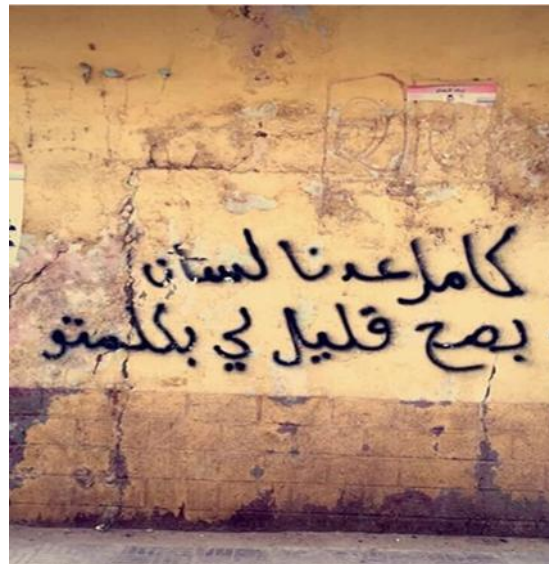 كامل عدنا لسان
بصح قليل لي بكلمتو